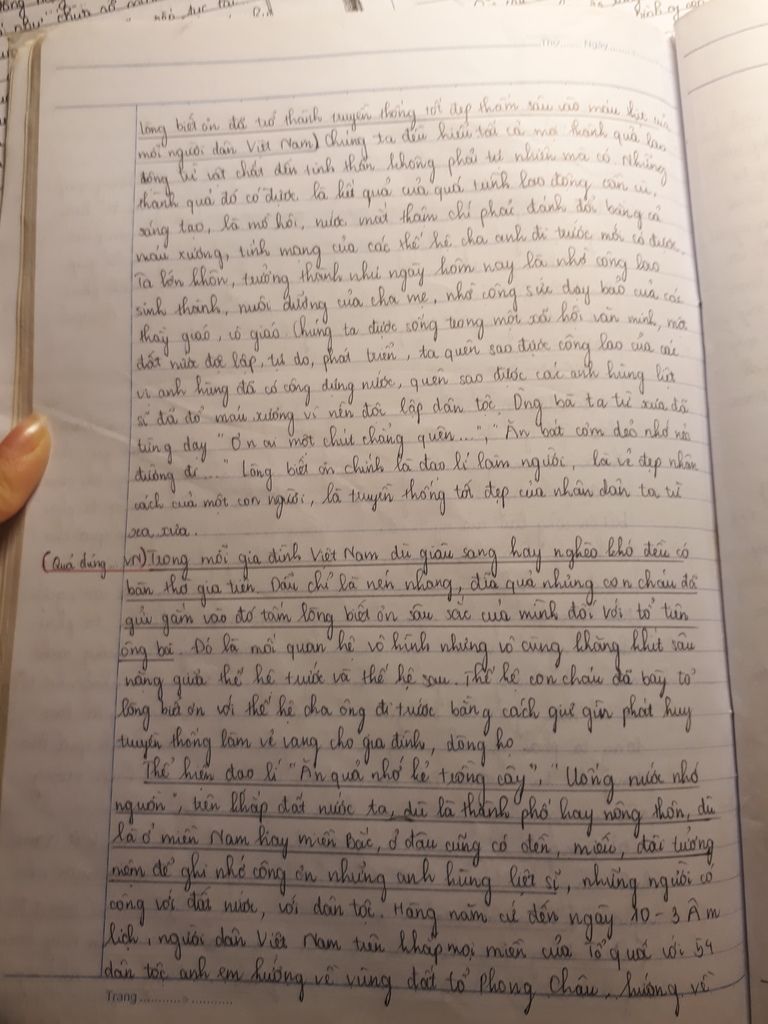 Thứ ....... Ngày ..........
lòng biết ơn đã trở thành truyền thống tốt đẹp thấm sâu vào máu thịt của
mỗi người dân Việt Nam) Chúng ta đều hiểu tất cả mọi thành quả lao
động từ vật chất đến tinh thần không phải tự nhiên mà có. Những
thành quả đó có được là kết quả của quá trình lao động cần cù,
sáng tạo, là mồ hôi, nước mắt thậm chí phải đánh đổi bằng cả
máu xương, tính mạng của các thế hệ cha anh đi trước mới có được.
Ta lớn khôn, trưởng thành như ngày hôm nay là nhờ công lao
sinh thành, nuôi dưỡng của cha mẹ, nhờ công sức dạy bảo của các
thầy giáo, cô giáo Chúng ta được sống trong một xã hội văn minh, một
đất nước độc lập, tự do, phát triển, ta quên sao được công lao của các
vị anh hùng đã có công dựng nước, quên sao được các anh hùng liệt
sĩ đã đổ máu xương vì nền độc lập dân tộc. Ông bà ta từ xưa đã
từng dạy "Ơn ai một chút chẳng quên...", "Ăn bát cơm dẻo nhớ nẻo
đường đi..." Lòng biết ơn chính là đạo lí làm người, là vẻ đẹp nhân
cách của một con người, là truyền thống tốt đẹp của nhân dân ta từ
xa xưa.
(Quá đúng VN) Trong mỗi gia đình Việt Nam dù giàu sang hay nghèo khó đều có
bàn thờ gia tiên. Dẫu chỉ là nén nhang, đĩa quả nhưng con cháu đã
gửi gắm vào đó tấm lòng biết ơn sâu sắc của mình đối với tổ tiên
ông bà. Đó là mối quan hệ vô hình nhưng vô cùng khăng khít sâu
nặng giữa thế hệ trước và thế hệ sau. Thế hệ con cháu đã bày tỏ
lòng biết ơn với thế hệ cha ông đi trước bằng cách giữ gìn phát huy
truyền thống làm vẻ vang cho gia đình, dòng họ.
Thể hiện đạo lí "Ăn quả nhớ kẻ trồng cây", "Uống nước nhớ
nguồn", trên khắp đất nước ta, dù là thành phố hay nông thôn, dù
là ở miền Nam hay miền Bắc, ở đâu cũng có đền, miếu, đài tưởng
niệm để ghi nhớ công ơn những anh hùng liệt sĩ, những người có
công với đất nước, với dân tộc. Hàng năm cứ đến ngày 10-3 Âm
lịch, người dân Việt Nam trên khắp mọi miền của Tổ quốc với 54
dân tộc anh em hướng về vùng đất tổ Phong Châu, hướng về
Trang ......................